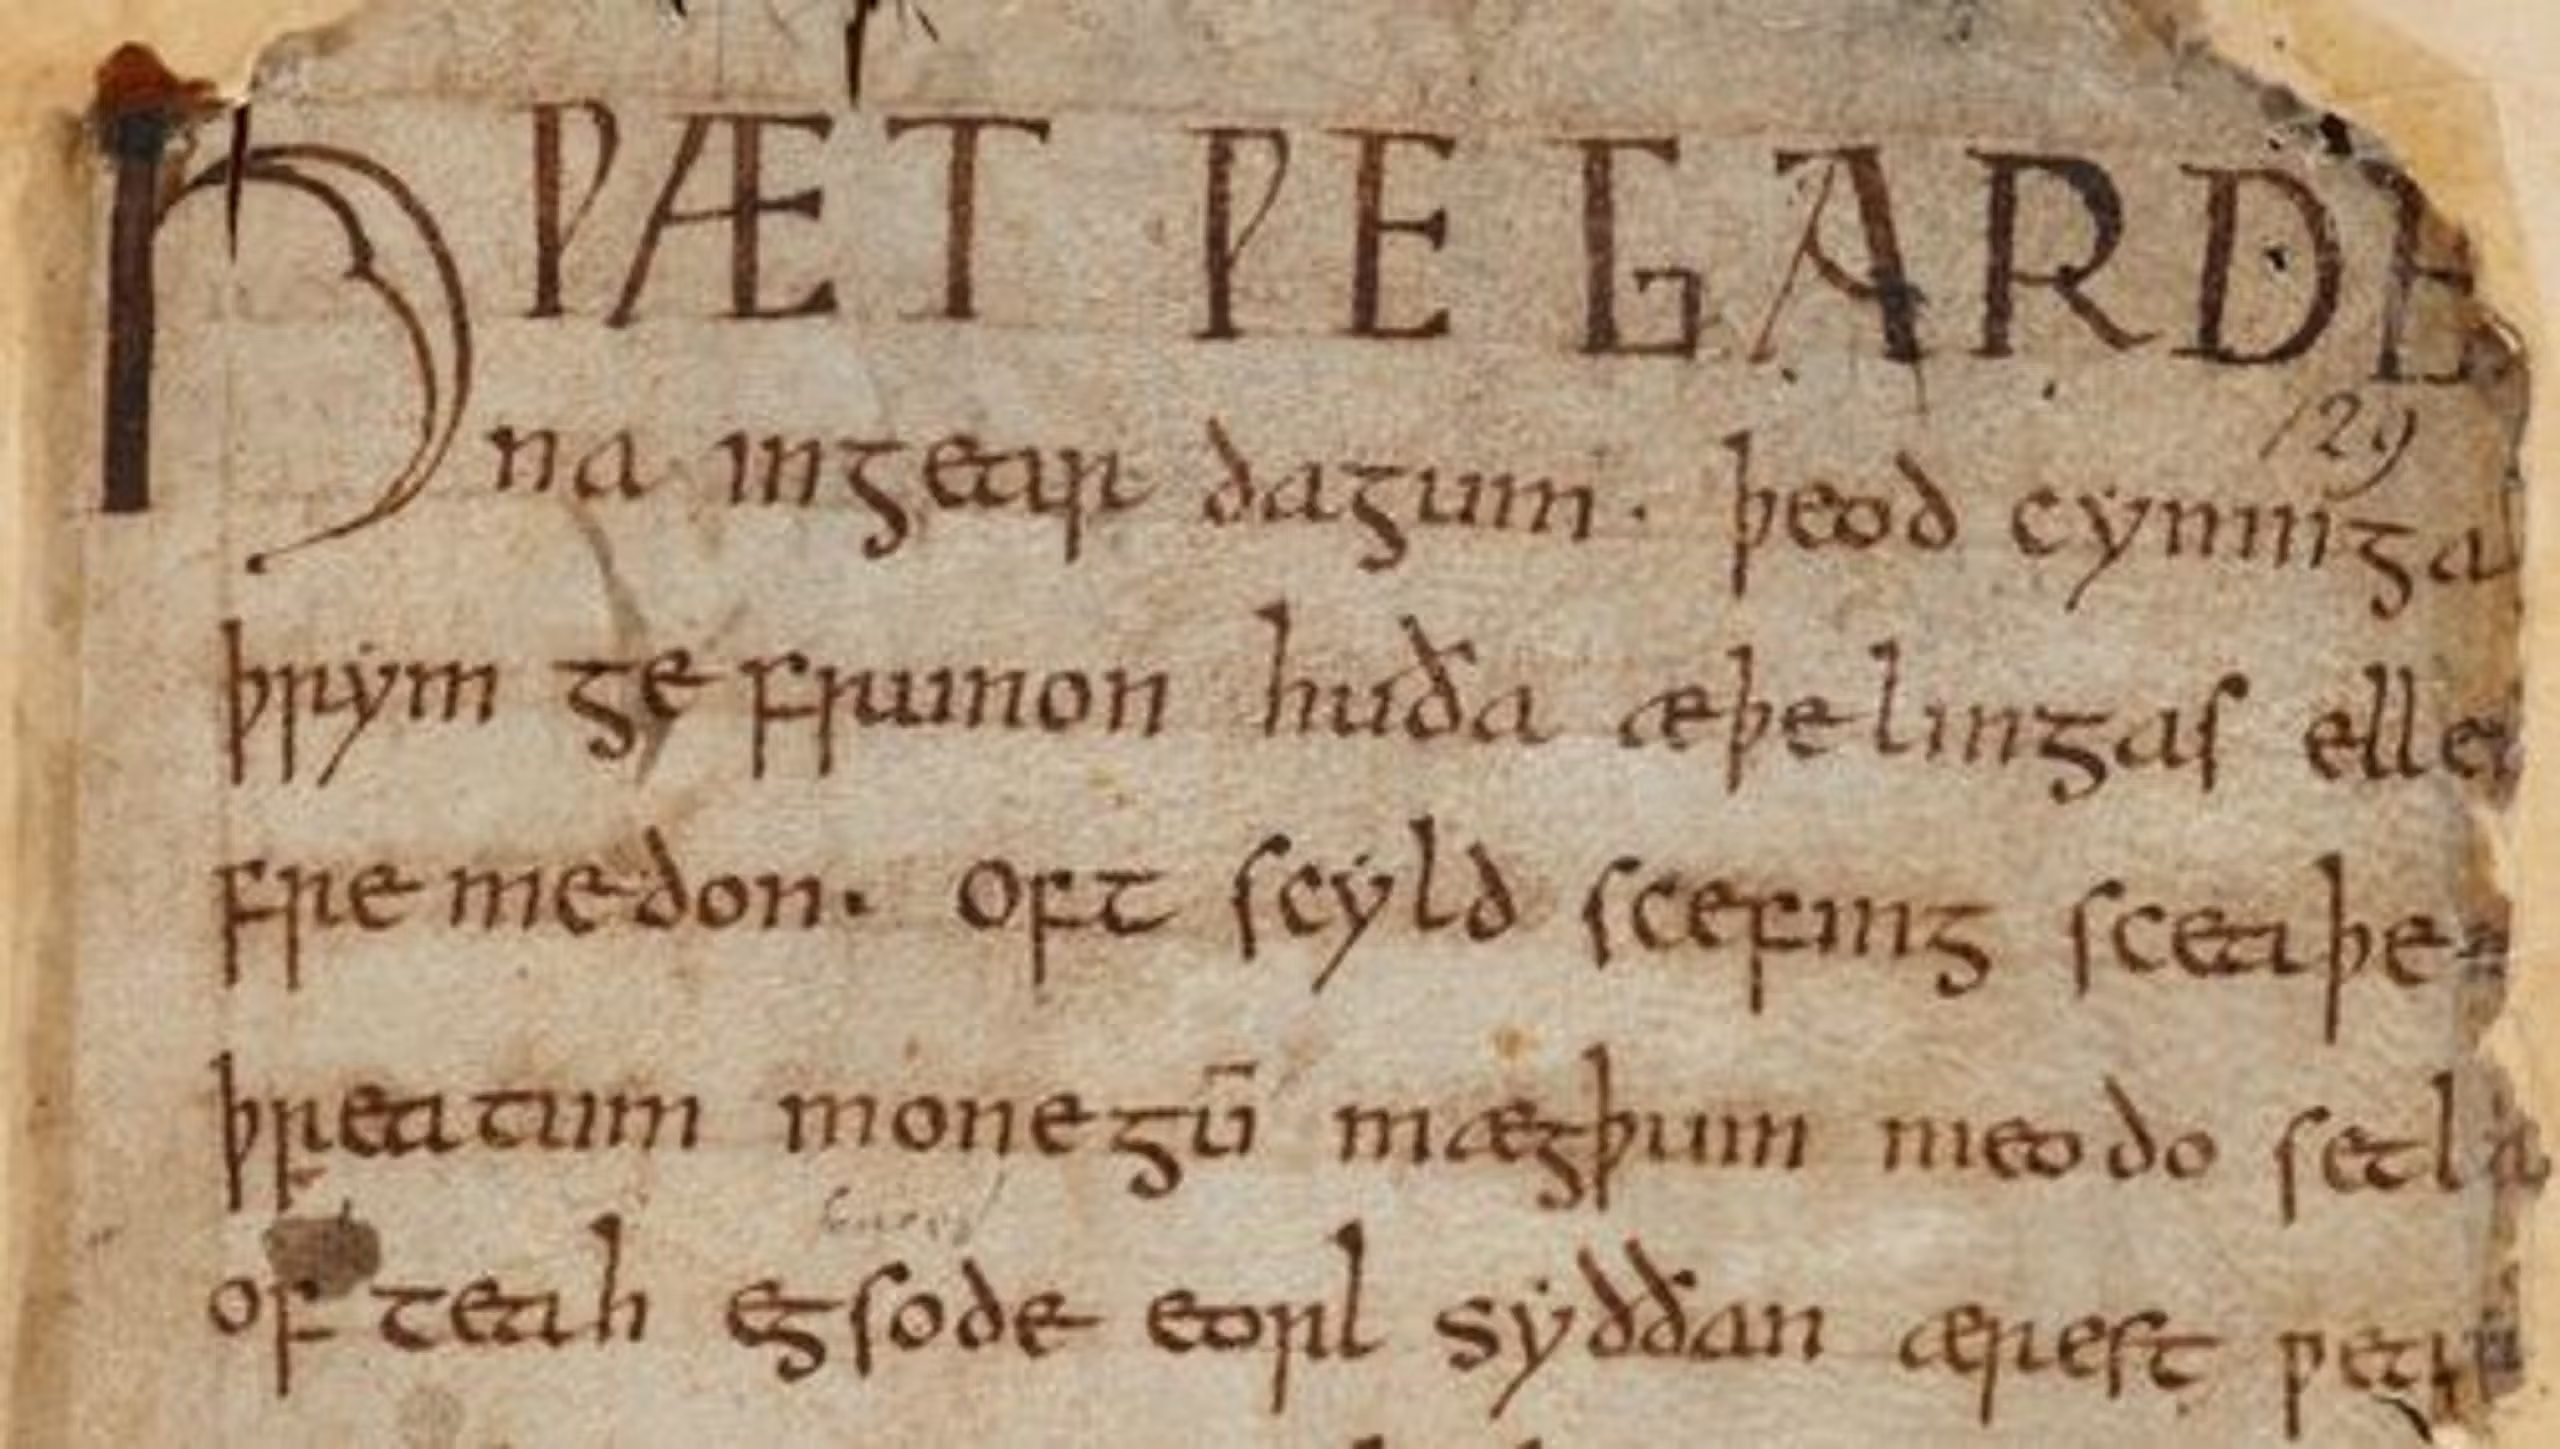 HǷÆT ǷE GARDE
129
na ingear dagum. þeod cyninga
þrym ge frunon huða æþelingas elle
fre medon. Oft scyld scefing sceaþe
þreatum monegū mægþum meodo setla
of teah egsode eorl syððan ærest ƿear